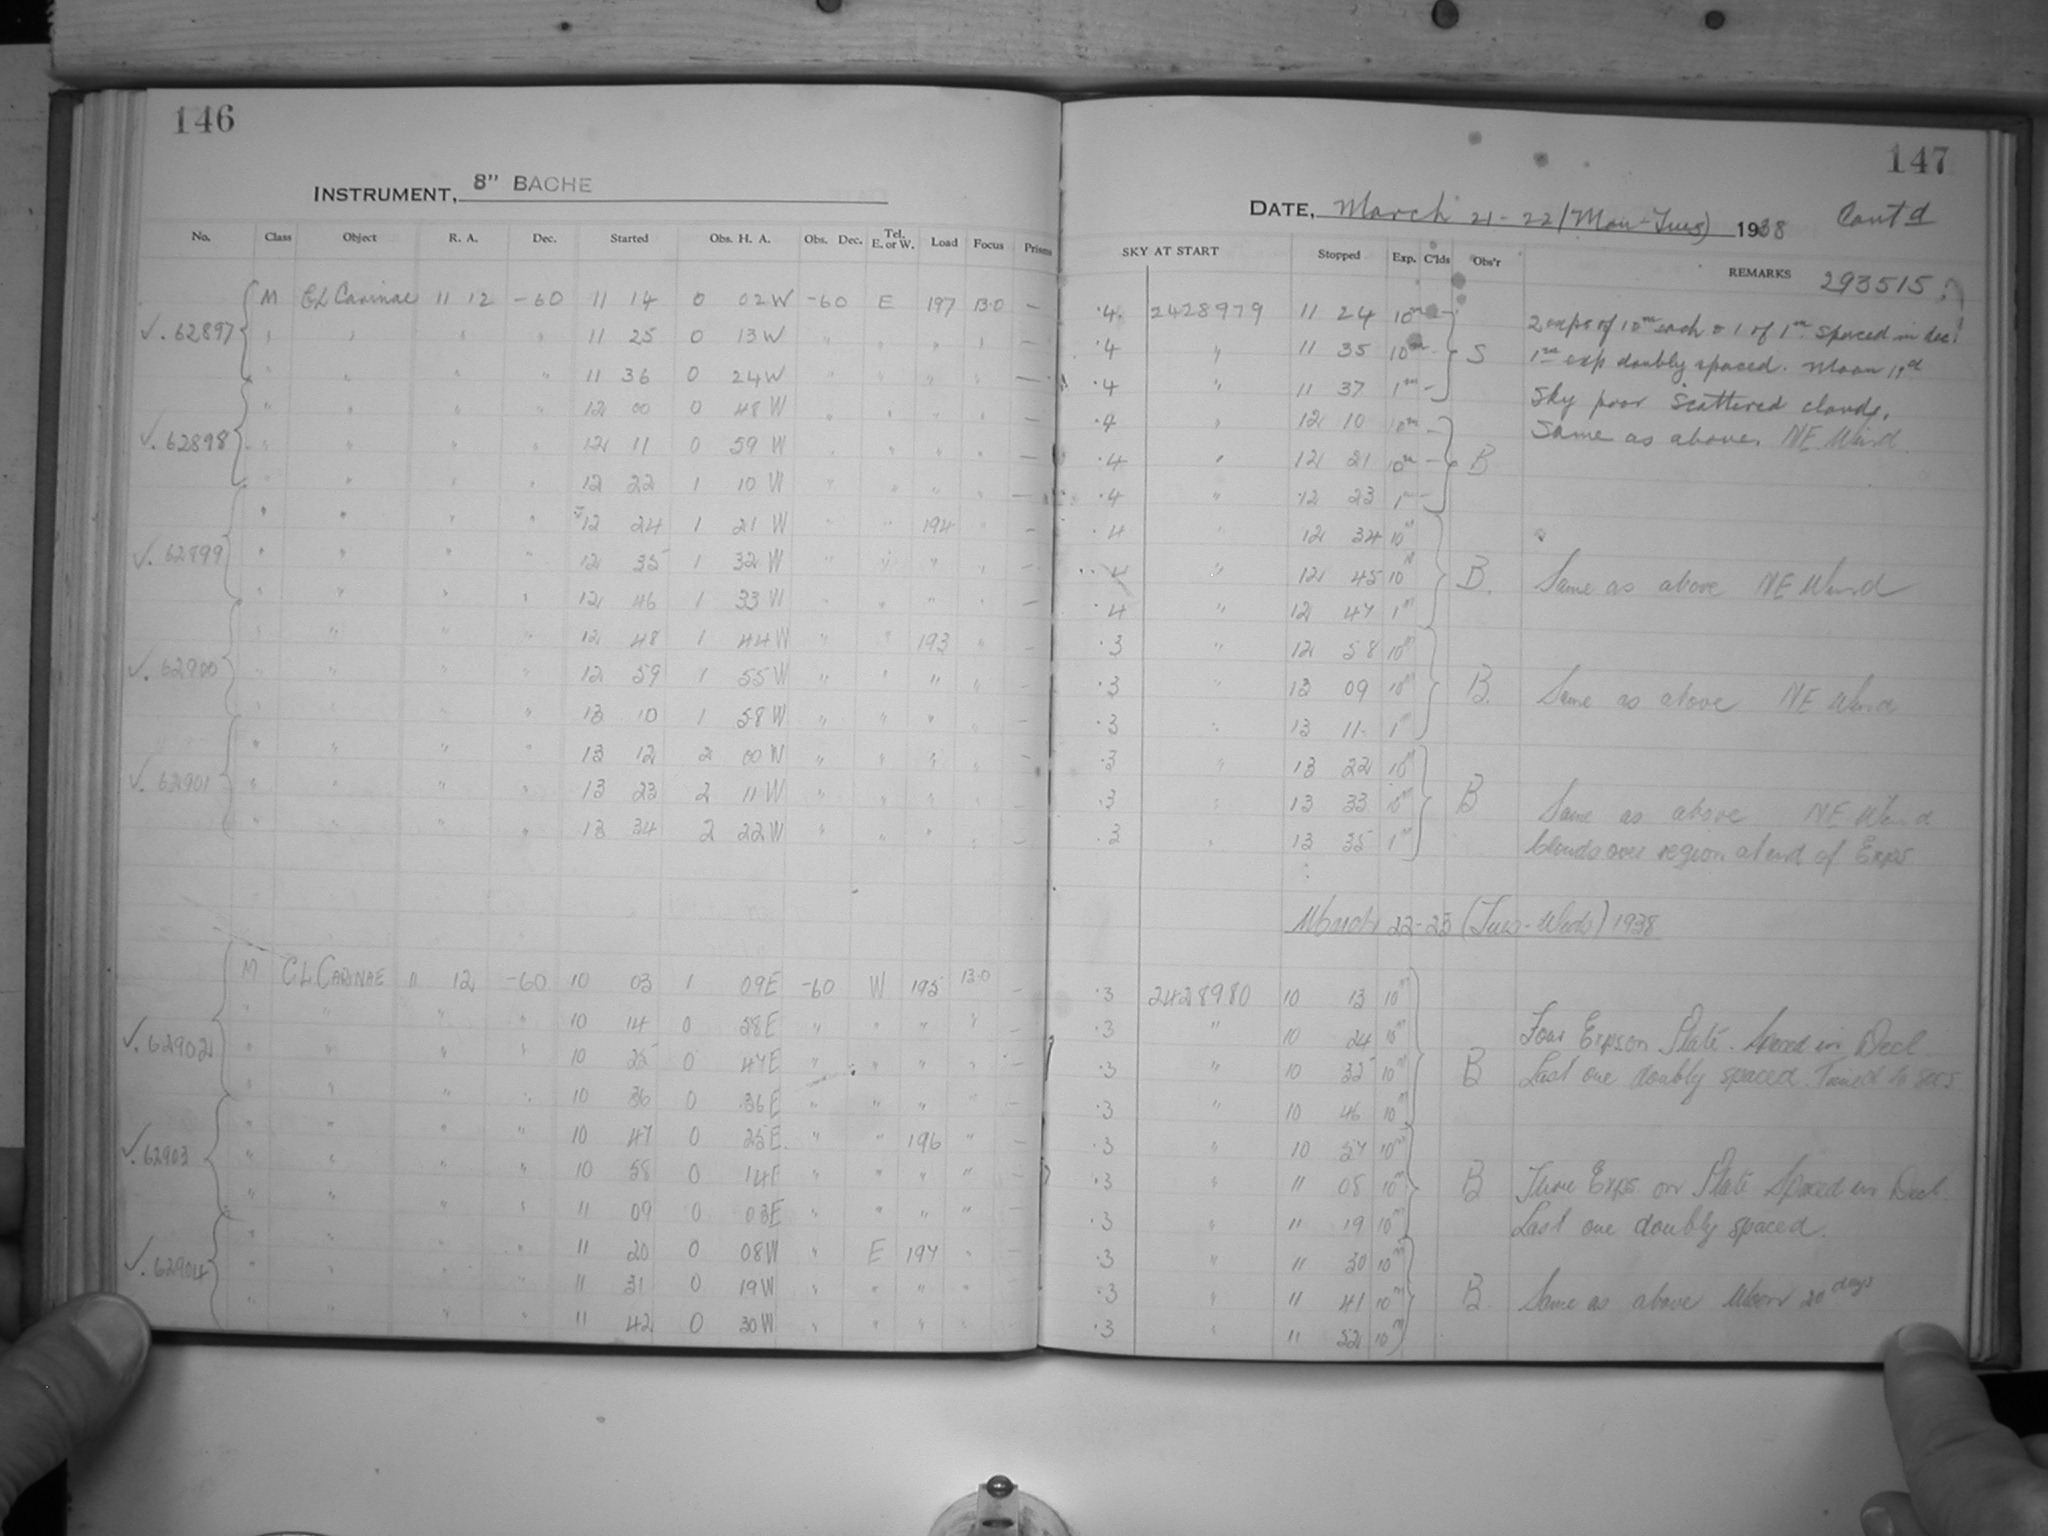 146
INSTRUMENT, 8" BACHE
No. Class Object R. A. Dec. Started Obs. H. A. Obs. Dec. Tel. E. or W. Load Focus Prisms
M CL Carinae 11 12 -60 11 14 0 02 W -60 E 197 13.0 —
✓. 62897 " " " " 11 25 0 13 W " " " " —
" " " " 11 36 0 24 W " " " " —
" " " " 12 00 0 48 W " " " " —
✓. 62898 " " " " 12 11 0 59 W " " " " —
" " " " 12 22 1 10 W " " " " —
" " " " 12 24 1 21 W " " 194 " —
✓. 62899 " " " " 12 35 1 32 W " " " " —
" " " " 12 46 1 33 W " " " " —
" " " " 12 48 1 44 W " " 193 " —
✓. 62900 " " " " 12 59 1 55 W " " " " —
" " " " 13 10 1 58 W " " " " —
" " " " 13 12 2 00 W " " " " —
✓. 62901 " " " " 13 23 2 11 W " " " " —
" " " " 13 34 2 22 W " " " " —
M CL CARINAE 11 12 -60 10 03 1 09 E -60 W 195 13.0 —
" " " " 10 14 0 58 E " " " " —
✓. 62902 " " " " 10 25 0 47 E " " " " —
" " " " 10 36 0 36 E " " " " —
" " " " 10 47 0 25 E " " 196 " —
✓. 62903 " " " " 10 58 0 14 E " " " " —
" " " " 11 09 0 03 E " " " " —
" " " " 11 20 0 08 W " E 197 " —
✓. 62904 " " " " 11 31 0 19 W " " " " —
" " " " 11 42 0 30 W " " " " —
147
DATE, March 21-22 (Mon-Tues) 1938 Cont'd
SKY AT START Stopped Exp. C'lds Obs'r REMARKS 293515
.4 2428979 11 24 10m — 2 exps of 10m each & 1 of 1m spaced in dec.
.4 " 11 35 10m — S 1st exp doubly spaced. Moon 19d
.4 " 11 37 1m — Sky poor scattered clouds.
.4 " 12 10 10m — Same as above. NE Wind
.4 " 12 21 10m — B
.4 " 12 23 1m —
.4 " 12 34 10m
.4 " 12 45 10m B. Same as above NE Wind
.4 " 12 47 1m
.3 " 12 58 10m
.3 " 13 09 10m B. Same as above NE Wind
.3 " 13 11 1m
.3 " 13 22 10m
.3 " 13 33 10m B Same as above NE Wind
.3 " 13 35 1m Clouds over region at end of Exps
March 22-23 (Tues-Weds) 1938
.3 2428980 10 13 10m
.3 " 10 24 10m Four Exps on Plate. Spaced in Decl
.3 " 10 35 10m B Last one doubly spaced.
.3 " 10 46 10m
.3 " 10 57 10m
.3 " 11 08 10m B Three Exps. on Plate Spaced in Decl.
.3 " 11 19 10m Last one doubly spaced.
.3 " 11 30 10m
.3 " 11 41 10m B Same as above Moon 20 days
.3 " 11 52 10m